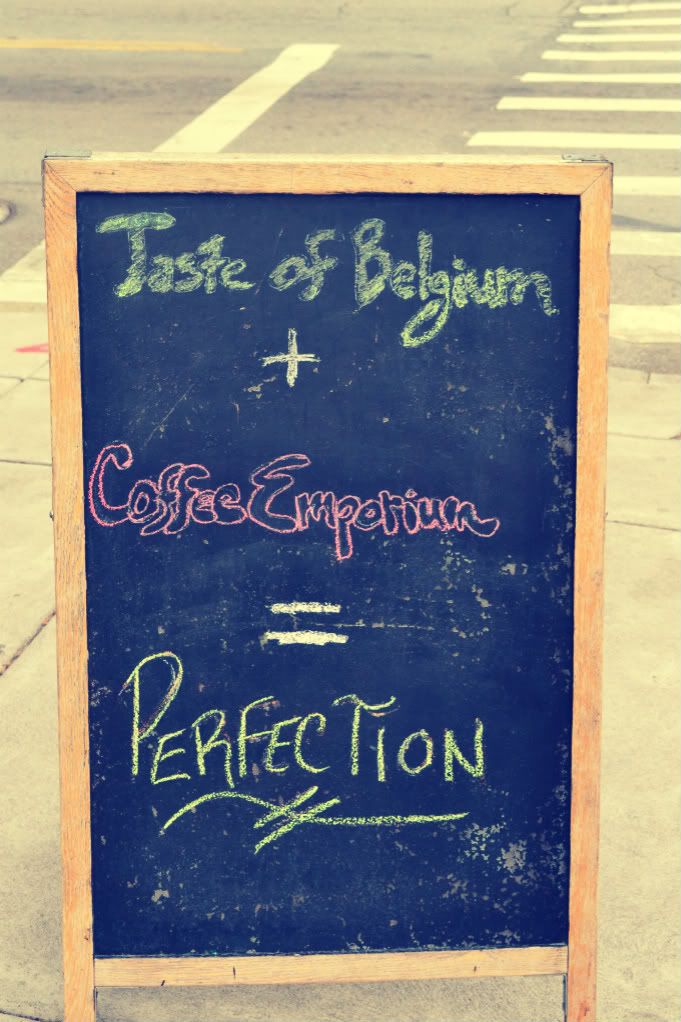 Taste of Belgium
+
Coffee Emporium
=
PERFECTION